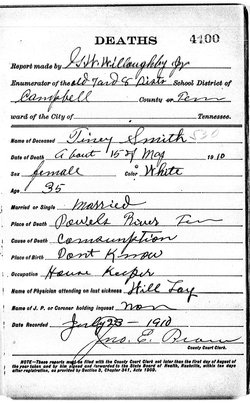 DEATHS 4100
Report made by G W Willoughby Jr
Enumerator of the old Yard & Dists School District of
Campbell County or Tenn
ward of the City of Tennessee.
Name of Deceased Tiney Smith 530
Date of Death About 15 of May 1910
Sex female Color White
Age 35
Married or Single Married
Place of Death Powels River Ten
Cause of Death Comsumption
Place of Birth Dont Know
Occupation House Keeper
Name of Physician attending on last sickness Will Lay
Name of J. P. or Coroner holding inquest non
Date Recorded July 23 - 1910
Jno. E.
County Court Clerk.
NOTE—These reports must be filed with the County Court Clerk not later than the first day of August of
the year taken and by him signed and forwarded to the State Board of Health, Nashville, within ten days
after registration, as provided by Section 3, Chapter 341, Acts 1909.